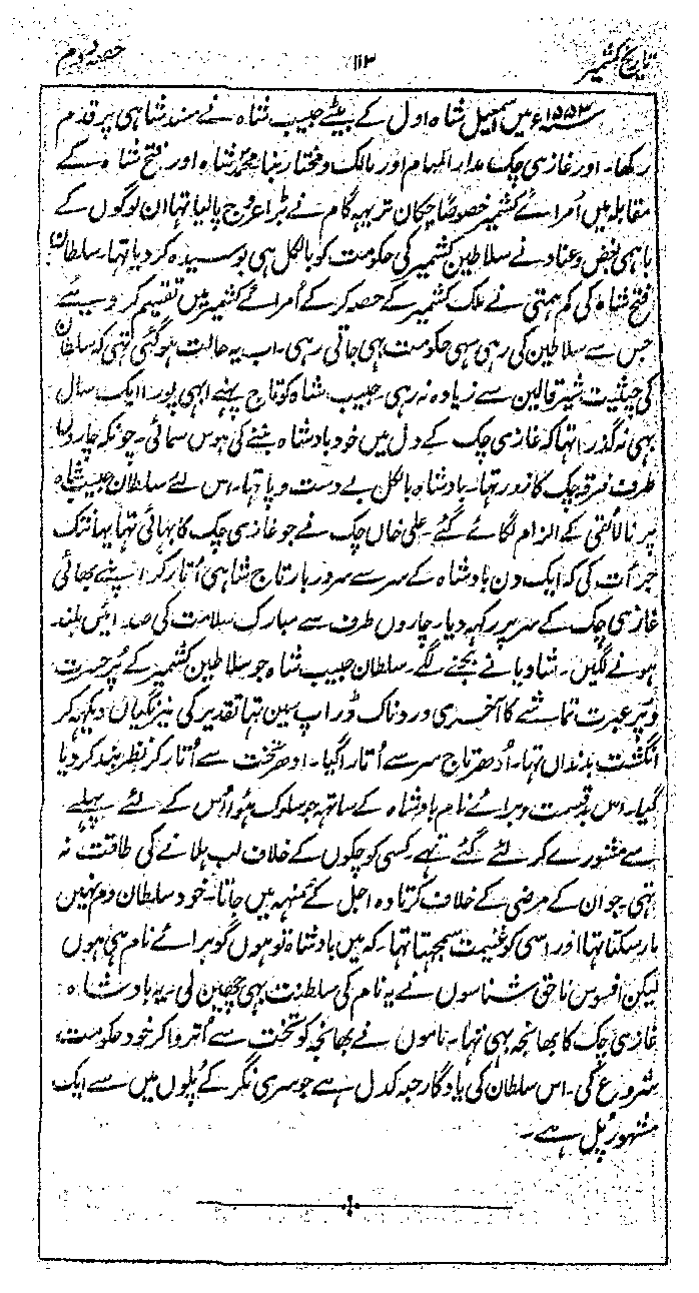 تاریخ کشمیر ۱۱۳ حصہ دوم
۱۵۵۳ء میں اسمٰعیل شاہ اول کے بیٹے حبیب شاہ نے مسند شاہی پر قدم
رکھا۔ اور غازی چک مدار المہام اور مالک و مختار بنا۔ محمد شاہ اور فتح شاہ کے
مقابلہ میں اُمرائے کشمیر خصوصاً چکان تریہہ گام نے بڑا عروج پالیا تہا ان لوگوں کے
باہمی بغض و عناد نے سلاطین کشمیر کی حکومت کو بالکل ہی بوسیدہ کر دیا تہا۔ سلطان
فتح شاہ کی کم ہمتی نے ملک کشمیر کے حصہ کر کے اُمرائے کشمیر میں تقسیم کر دیئے
جس سے سلاطین کی رہی سہی حکومت بہی جاتی رہی۔ اب یہ حالت ہو گئی تہی کہ سلطان
کی حیثیت شیر قالین سے زیادہ نہ رہی۔ حبیب شاہ کو تاج پہنے ابہی پورا ایک سال
بہی نہ گذرا تہا کہ غازی چک کے دل میں خود بادشاہ بننے کی ہوس سمائی۔ چونکہ چاروں
طرف فرقہ چک کا زور تہا۔ بادشاہ بالکل بے دست و پا تہا۔ اس لئے سلطان حبیب شاہ
پر نالائقی کے الزام لگائے گئے۔ علی خاں چک نے جو غازی چک کا بہائی تہا یہانتک
جرأت کی کہ ایک دن بادشاہ کے سر سے سر دربار تاج شاہی اُتار کر اپنے بھائی
غازی چک کے سر پر رکہہ دیا۔ چاروں طرف سے مبارک سلامت کی صدائیں بلند
ہونے لگیں۔ شادیانے بجنے لگے۔ سلطان حبیب شاہ جو سلاطین کشمیر کے پُر حسرت
و پر عبرت تماشے کا آخری و دردناک ڈراپ سین تہا تقدیر کی نیرنگیاں دیکہہ کر
انگشت بدنداں تہا۔ اُدھر تاج سر سے اُتارا گیا۔ ادھر تخت سے اُتار کر نظر بند کر دیا
گیا۔ اس بدقسمت و برائے نام بادشاہ کے ساتھہ جو سلوک ہوا اُس کے لئے پہلے
سے مشورے کر لئے گئے تہے۔ کسی کو چکوں کے خلاف لب ہلانے کی طاقت نہ
تہی۔ جو ان کے مرضی کے خلاف کرتا وہ اجل کے مُنہہ میں جاتا۔ خود سلطان دم نہین
مار سکتا تہا اور اسی کو غنیمت سمجہتا تہا۔ کہ میں بادشاہ تو ہوں گو برائے نام ہی ہوں
لیکن افسوس ناحق شناسوں نے یہ نام کی سلطنت بہی چھین لی۔ یہ بادشاہ
غازی چک کا بھانجہ بہی تہا۔ ماموں نے بھانجہ کو تخت سے اُتروا کر خود حکومت
شروع کی۔ اس سلطان کی یادگار حبہ کدل ہے جو سری نگر کے پُلوں میں سے ایک
مشہور پُل ہے۔